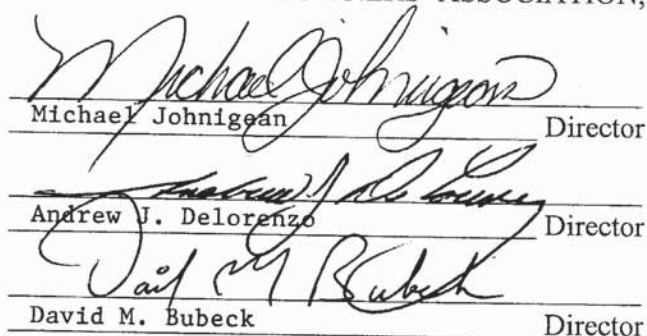 ASSOCIATION,
Michael Johnigean
Michael Johnigean Director
Andrew J. Delorenzo Director
David M. Bubeck
David M. Bubeck Director